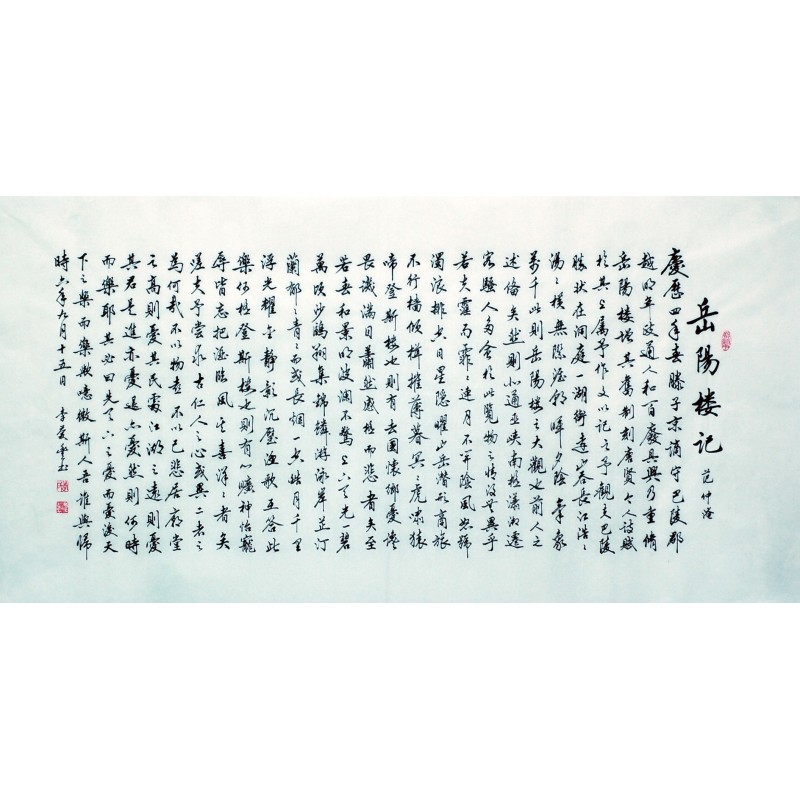 岳陽楼记
范仲淹
慶歷四年春滕子京谪守巴陵郡
越明年政通人和百廢具興乃重脩
岳陽楼增其舊制刻唐賢今人詩賦
於其上属予作文以記之予觀夫巴陵
勝状在洞庭一湖銜遠山吞長江浩浩
湯湯横無際涯朝暉夕陰氣象
萬千此則岳陽楼之大觀也前人之
述備矣然則北通巫峡南極瀟湘遷
客騷人多會於此覧物之情得無異乎
若夫霪雨霏霏連月不開陰風怒號
濁浪排空日星隐曜山岳潜形商旅
不行檣傾楫摧薄暮冥冥虎嘯猿
啼登斯楼也則有去國懷鄉憂讒
畏譏满目蕭然感極而悲者矣至
若春和景明波澜不驚上下天光一碧
萬顷沙鷗翔集錦鳞游泳岸芷汀
蘭郁郁青青而或長烟一空皓月千里
浮光耀金静影沉璧渔歌互答此
樂何極登斯楼也則有心曠神怡寵
辱皆忘把酒臨風其喜洋洋者矣
嗟夫予嘗求古仁人之心或異二者之
為何哉不以物喜不以己悲居廟堂
之高則憂其民處江湖之遠則憂
其君是進亦憂退亦憂然則何時
而樂耶其必曰先天下之憂而憂後天
下之樂而樂歟噫微斯人吾誰與歸
時六年九月十五日